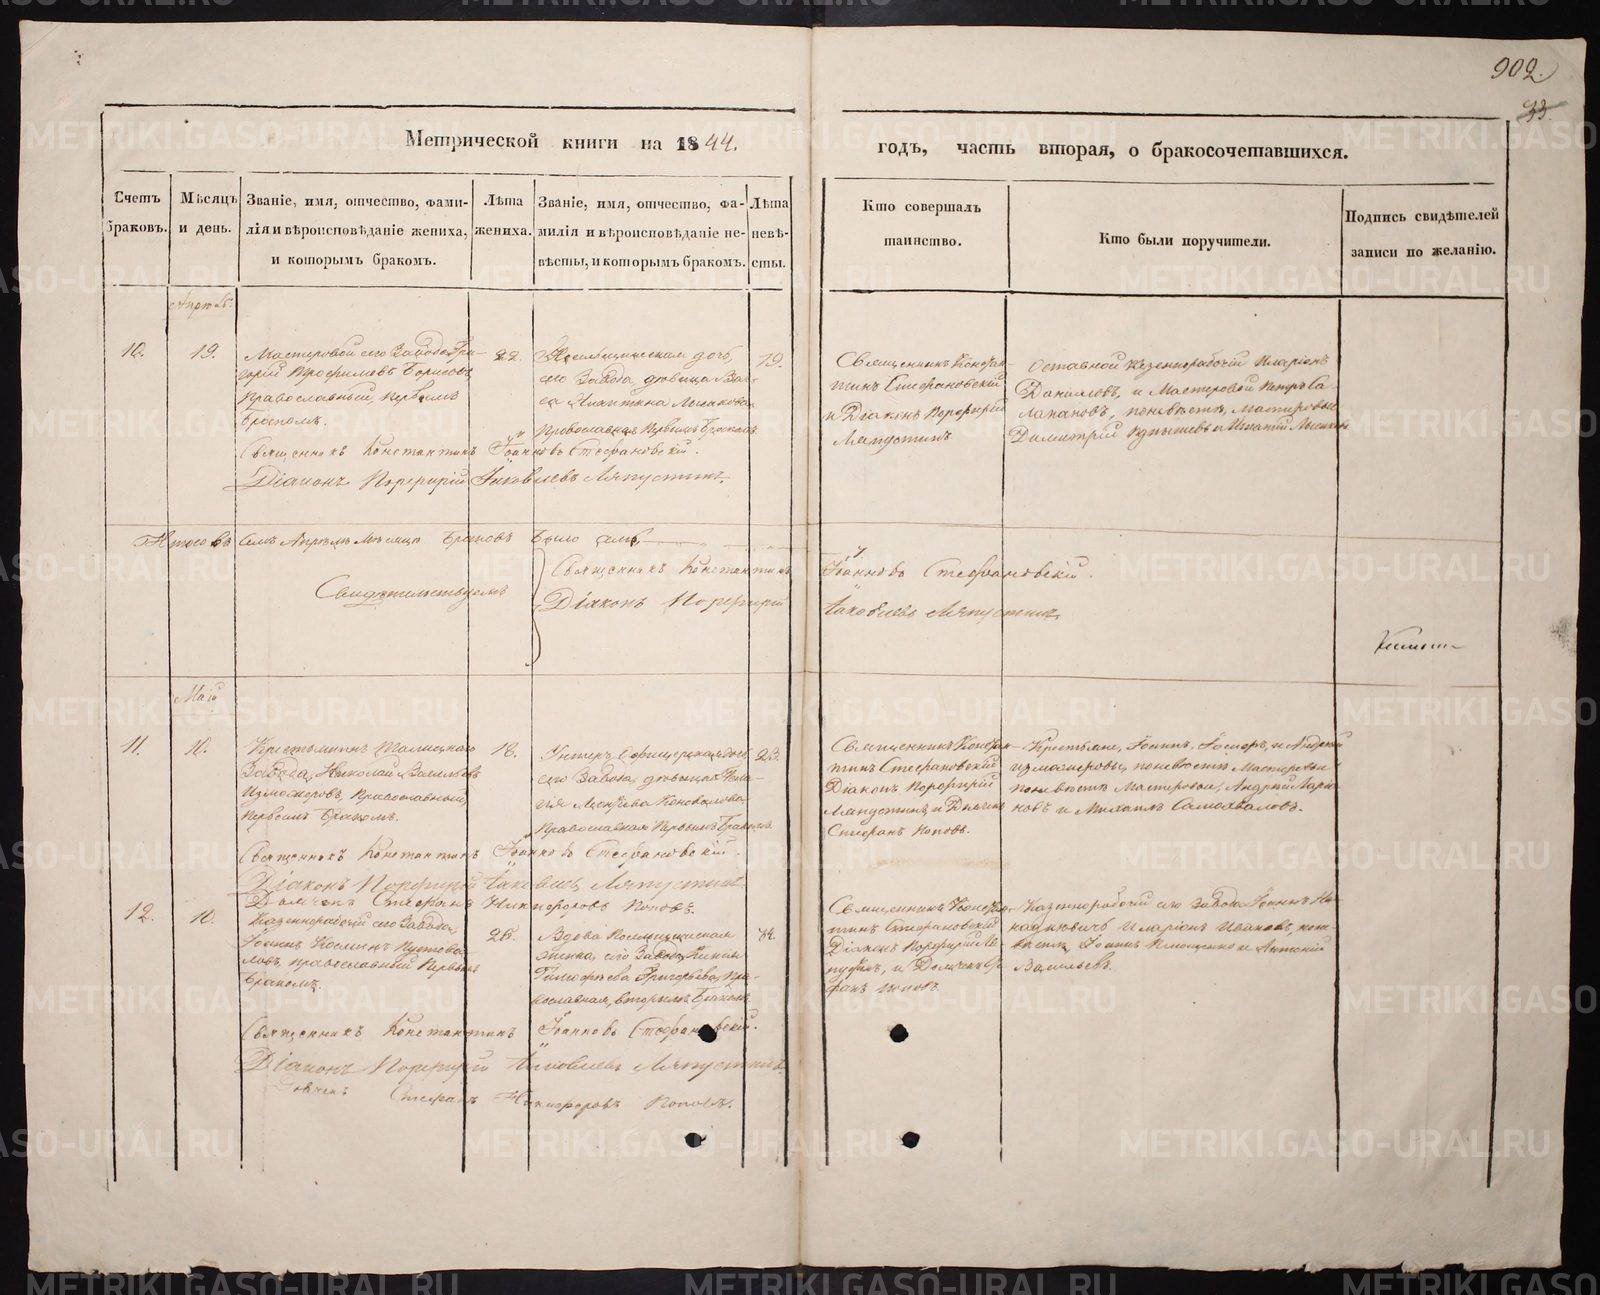 902.
33
Метрической книги на 1844.
годъ, часть вторая, о бракосочетавшихся.
Счетъ
браковъ.
Мѣсяцъ
и день.
Званіе, имя, отчество, фами-
лія и вѣроисповѣданіе жениха,
и которымъ бракомъ.
Лѣта
жениха.
Званіе, имя, отчество, фа-
милія и вѣроисповѣданіе не-
вѣсты, и которымъ бракомъ.
Лѣта
невѣ-
сты.
Кто совершалъ
таинство.
Кто были поручители.
Подпись свидѣтелей
записи по желанію.
Апрель.
10.
19.
Мастеровой сего Завода Гри-
горій Трофимовъ Борисовъ,
православный, первымъ
бракомъ.
22.
дочь,
сего Завода, девица Ва-
са Никитина
Православная Первымъ Бракомъ.
19.
Священникъ Констан-
тинъ Стефановскій
и Діаконъ Порфирій
Ляпустинъ
Отставной казеннорабочій Иларіонъ
Даниловъ, и Мастеровой Петръ Са-
, по невѣстѣ, Мастеровые
Димитрій и Игнатій
Священникъ Константинъ Іоанновъ Стефановскій.
Діаконъ Порфирій Іаковлевъ Ляпустинъ.
Итого въ семъ Апрелѣ Месяце Браковъ Было
Свидетельствуемъ
Священникъ Константинъ Іоанновъ Стефановскій.
Діаконъ Порфирій Іаковлевъ Ляпустинъ.
Май
11.
10.
Крестьянинъ Талицкаго
Завода, Николай Васильевъ
Изможеровъ, Православный,
первымъ бракомъ.
18.
Унтеръ Офицерская дочь
сего Завода, девица
Коновалова,
Православная Первымъ Бракомъ.
23.
Священникъ Констан-
тинъ Стефановскій
Діаконъ Порфирій
Ляпустинъ и Дьячекъ
Стефанъ Поповъ.
Крестьяне, Іоаннъ, и Андрей
Изможеровы, по невѣстѣ Мастеровые
по невѣстѣ Мастеровые, Андрей Ларіо-
новъ и Михаилъ Самохваловъ.
Священникъ Константинъ Іоанновъ Стефановскій.
Діаконъ Порфирій Іаковлевъ Ляпустинъ.
Дьячекъ Стефанъ Никифоровъ Поповъ.
12.
10.
Казеннорабочій сего Завода,
Іоаннъ Косминъ Пустова-
ловъ, православный Первымъ
бракомъ.
25.
Вдова
сего Завода,
Тимофеева Григорьева, Пра-
вославная, вторымъ бракомъ.
Священникъ Констан-
тинъ Стефановскій
Діаконъ Порфирій Ля-
пустинъ, и Дьячекъ Сте-
фанъ Поповъ.
Казеннорабочій сего Завода Іоаннъ
и Иларіонъ Ивановъ, по не-
вѣстѣ Іоаннъ и Антоній
Васильевъ.
Священникъ Константинъ Іоанновъ Стефановскій.
Діаконъ Порфирій Іаковлевъ Ляпустинъ.
Дьячекъ Стефанъ Никифоровъ Поповъ.
METRIKI.GASO-URAL.RU